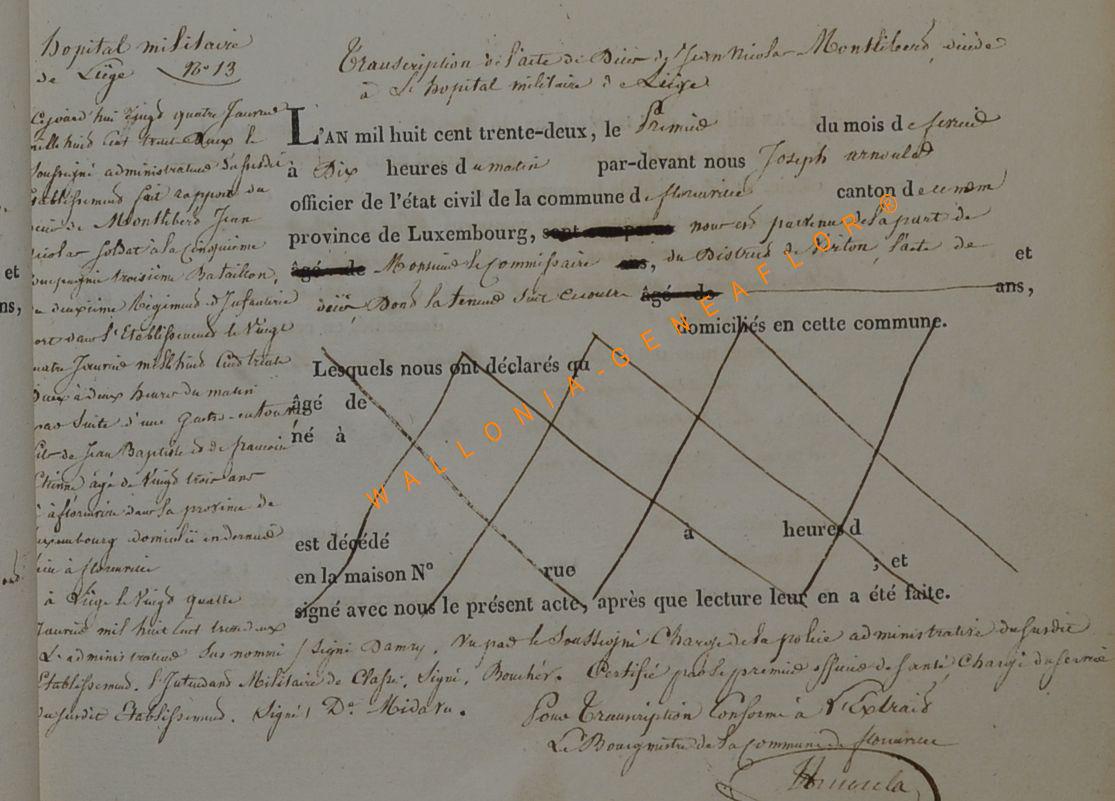 Transcription de l'acte de Décès de Jean Nicolas Montlibert, décédé
à L'hopital militaire de Liège
L'AN mil huit cent trente-deux, le Premier du mois de fevrier
à Dix heures du matin par-devant nous Joseph arnould
officier de l'état civil de la commune de florenville canton de ce nom
province de Luxembourg, nous est parvenu de la part de
âgé de Monsieur le Commissaire ans, du District d'Arlon, l'acte de et
décès Dont la teneur Suit âgé de ans,
domiciliés en cette commune.
Lesquels nous ont déclarés qu
âgé de
né à
est décédé à heures d
en la maison N° rue ; et
signé avec nous le présent acte, après que lecture leur en a été faite.
hopital militaire
de Liège N° 13
vingt quatre Janvier
mille huit Cent trente Deux le
Soussigné administrateur du susdit
Etablissement fait rapport du
décès de Montlibert Jean
Nicolas Soldat à la Cinquième
Compagnie troisième Bataillon,
deuxième Régiment d'Infanterie
mort dans l'Etablissement le Vingt
quatre Janvier mil huit Cent trente
Deux à deux heures du matin
par Suite d'une Gastro-
fils de Jean Baptiste et de francoise
Etienne âgé de Vingt trois ans
né à florenville dans la province de
Luxembourg domicilié en dernier
lieu à florenville
à Liège le Vingt quatre
Janvier mil huit Cent trente deux
L'administrateur Sus nommé / Signé Damry. Vu par le Soussigné Chargé de la police administrative du Susdit
Etablissement. l'Intendant Militaire de Classe. Signé, Boucher. Certifié par le premier officier de Santé Chargé du service
du Susdit Etablissement. Signé
Pour Transcription Conforme à l'Extrait
Le Bourgmestre de la Commune de florenville
et
ns,
WALLONIA-GENEAFLOR®